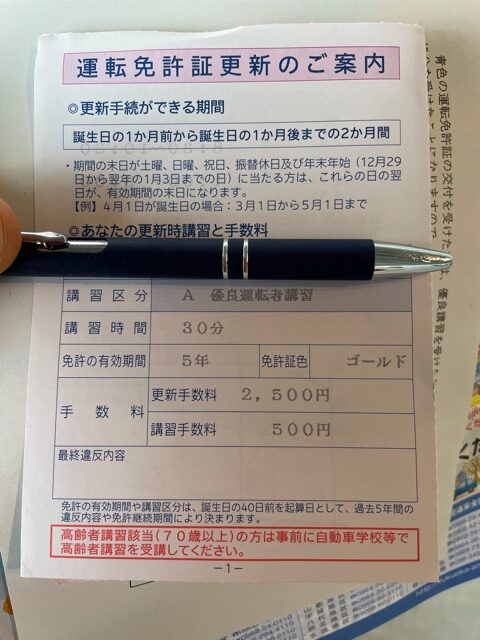 運転免許証更新のご案内
◎更新手続ができる期間
誕生日の1か月前から誕生日の1か月後までの2か月間
・期間の末日が土曜、日曜、祝日、振替休日及び年末年始（12月29
日から翌年の1月3日までの日）に当たる方は、これらの日の翌
日が、有効期間の末日になります。
【例】4月1日が誕生日の場合：3月1日から5月1日まで
◎あなたの更新時講習と手数料
講習区分 A 優良運転者講習
講習時間 30分
免許の有効期間 5年 免許証色 ゴールド
手数料 更新手数料 2,500円
講習手数料 500円
最終違反内容
免許の有効期間や講習区分は、誕生日の40日前を起算日として、過去5年間の
違反内容や免許継続期間により決まります。
高齢者講習該当（70歳以上）の方は事前に自動車学校等で
高齢者講習を受講してください。
-1-
青色の運転免許証の交付を受けた
は、優良講習を受け